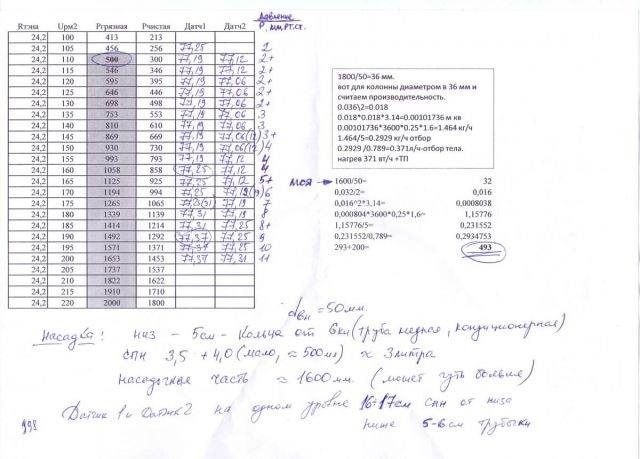 давление
Rтэна Uрм2 Pгрязная Pчистая Датч1 Датч2 P, мм,рт.ст.
24,2 100 413 213
24,2 105 456 256 77,25 2
24,2 110 500 300 77,19 77,12 2+
24,2 115 546 346 77,19 77,12 2+
24,2 120 595 395 77,19 77,06 2+
24,2 126 646 446 77,19 77,06 2+
24,2 130 698 498 77,19 77,06 2+
24,2 135 753 553 77,19 77,06 3
24,2 140 810 610 77,19 77,06 3
24,2 145 869 669 77,19 77,06(12) 3+
24,2 150 930 730 77,19 77,06(12) 4
24,2 155 993 793 77,19 77,12 4
24,2 160 1058 858 77,25 77,12 4
24,2 165 1125 925 77,25 77,12 5+
24,2 170 1194 994 77,25 77,12(19) 6
24,2 175 1265 1065 77,25(31) 77,19 7
24,2 180 1339 1139 77,31 77,19 8
24,2 185 1414 1214 77,31 77,25 8+
24,2 190 1492 1292 77,37 77,25 9
24,2 195 1571 1371 77,37 77,25 10
24,2 200 1653 1453 77,37 77,31 11
24,2 205 1737 1537
24,2 210 1822 1622
24,2 215 1910 1710
24,2 220 2000 1800
1800/50=36 мм.
вот для колонны диаметром в 36 мм и
считаем производительность.
0.036\2=0.018
0.018*0.018*3.14=0.00101736 м кв
0.00101736*3600*0.25*1.6=1.464 кг/ч
1.464/5=0.2929 кг/ч отбор
0.2929 /0.789=0.371л/ч-отбор тела.
нагрев 371 вт/ч +ТП
моя
1600/50= 32
0,032/2= 0,016
0,016^2*3,14= 0,0008038
0,000804*3600*0,25*1,6= 1,15776
1,15776/5= 0,231552
0,231552/0,789= 0,2934753
293+200= 493
dвн = 50мм.
Насадка: низ - 5см - кольца от 6ки (труба медная, кондиционерная)
спн 3,5 + 4,0 (мало, ≈ 500мл) ≈ 3 литра
насадочная часть ≈ 1600мм. (может чуть больше)
Датчик 1 и Датчик 2 на одном уровне 16-17см спн от низа
ниже 5-6см трубки
998